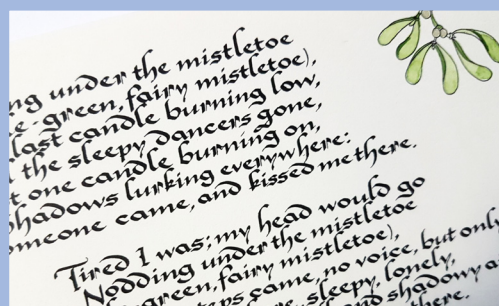 under the mistletoe
green, fairy mistletoe),
last candle burning low,
the sleepy dancers gone,
one candle burning on,
shadows lurking everywhere:
came, and kissed me there.
Tired I was; my head would go
Nodding under the mistletoe
green, fairy mistletoe),
came, no voice, but only
sleepy, lonely,
and shadowy
there.